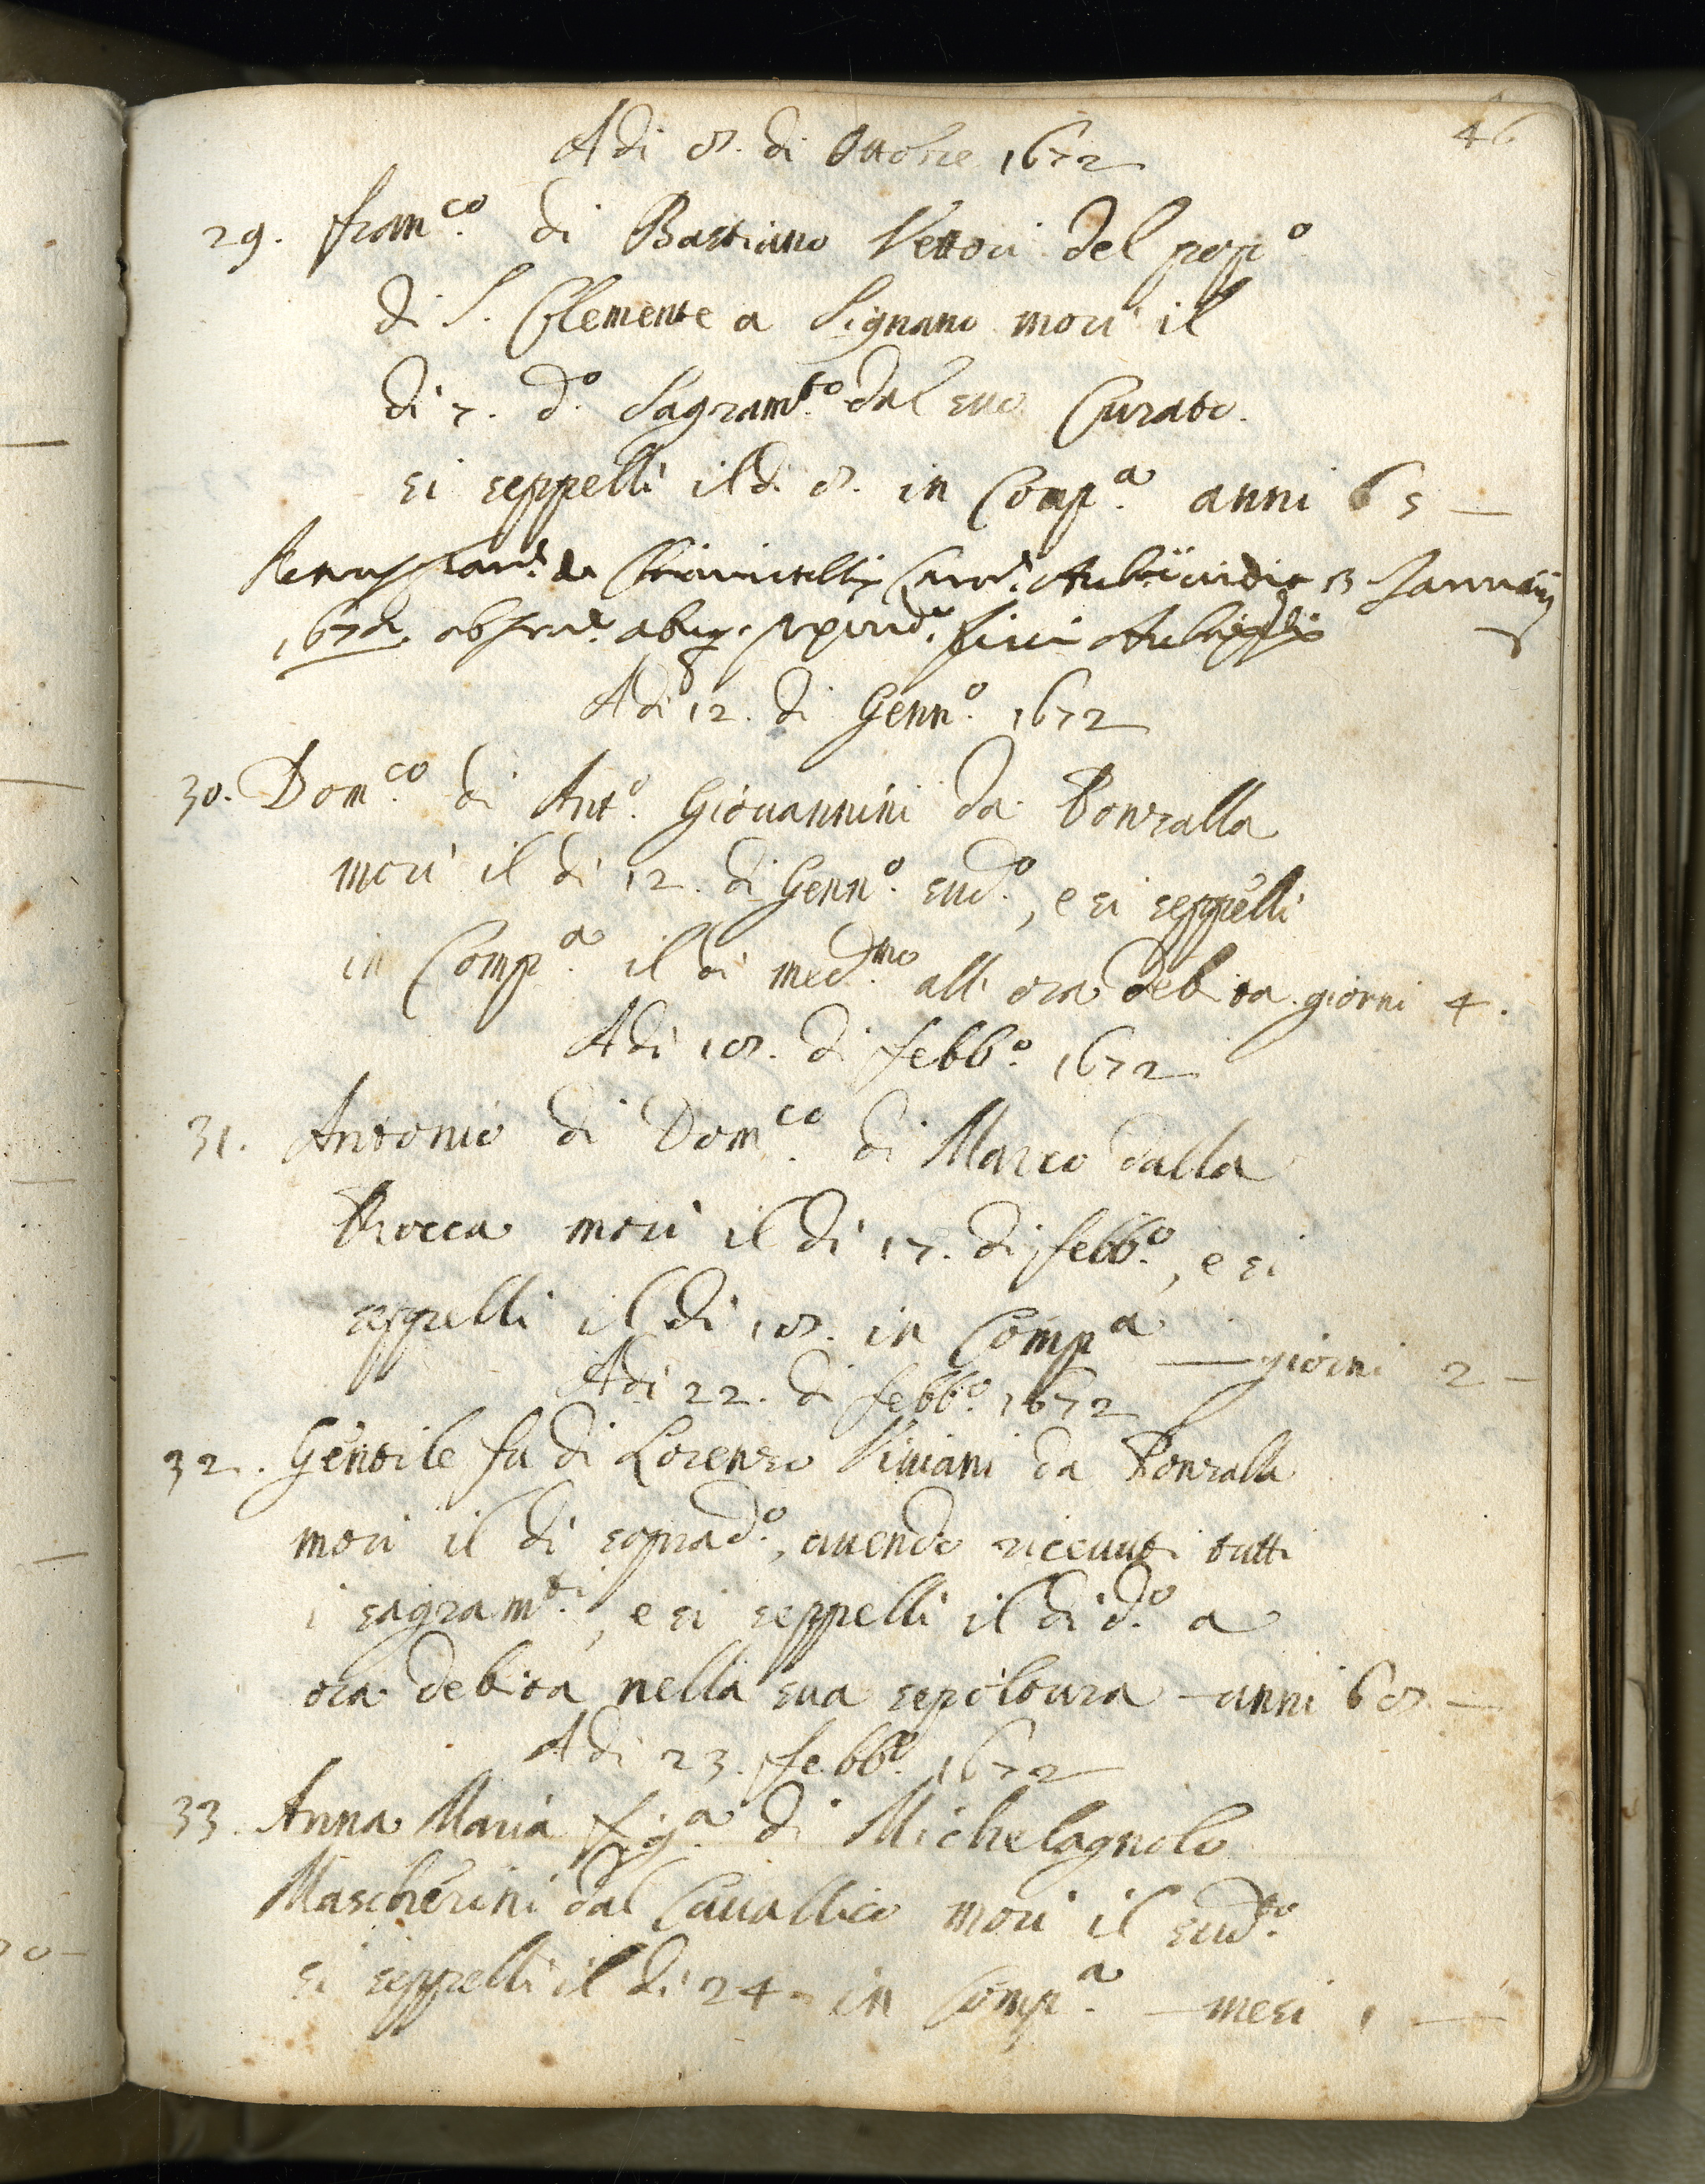 46
Adi 8. di Ottobre 1672
29. Fran.co di Bastiano Vettori del pop.o
di S. Clemente a Signano morì il
di 7. d.o Sagram.to dal suo Curato.
si seppellì il di 8. in Comp.a anni 65 —
13 Januarij
1672.
Adi 12. di Genn.o 1672
30. Dom.co di Ant.o Giouannini da Ponzalla
morì il di 12. di Genn.o sud.o, e si seppelli
in Comp.a il di med.mo all' ora debita giorni 4.
Adi 18. di febb.o 1672
31. Antonio di Dom.co di Marco dalla
Rocca morì il di 17. di febb.o, e si
seppelli il di 18. in Comp.a — giorni 2 —
Adi 22. di febb.o 1672
32. Gentile fu di Lorenzo Viuiani da Ponzalla
morì il di soprad.o, auendo riceuuti tutti
i sagram.ti, e si seppelli il di d.o a
ora debita nella sua sepoltura — anni 68 —
Adi 23. febb.o 1672
33. Anna Maria fig.a di Michelagnolo
Mascherini dal Cauallico morì il sud.to
si seppelli il di 24. in Comp.a — mesi 1 —